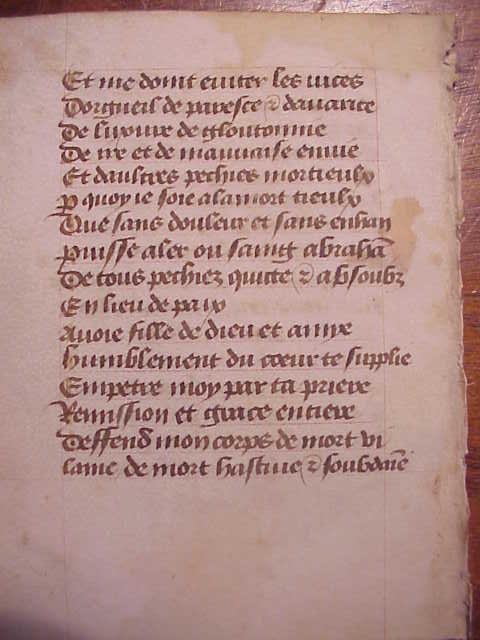 Et me doint euiter les uices
Dorgueil de paresce & dauarice
De luxure de gloutonnie
De ire et de mauuaise enuie
Et daultres pechies mortieulx
p quoy ie soie a la mort tieulx
Que sans douleur et sans enhan
puisse aler ou saing abrahā
De tous pechiez quicte & absoubz
En lieu de paix
Auoie fille de dieu et amye
humblement du coeur te supplie
Empetre moy par ta priere
Remission et grace entiere
Deffend mon corps de mort vi
laine de mort hastiue & soubdaīe